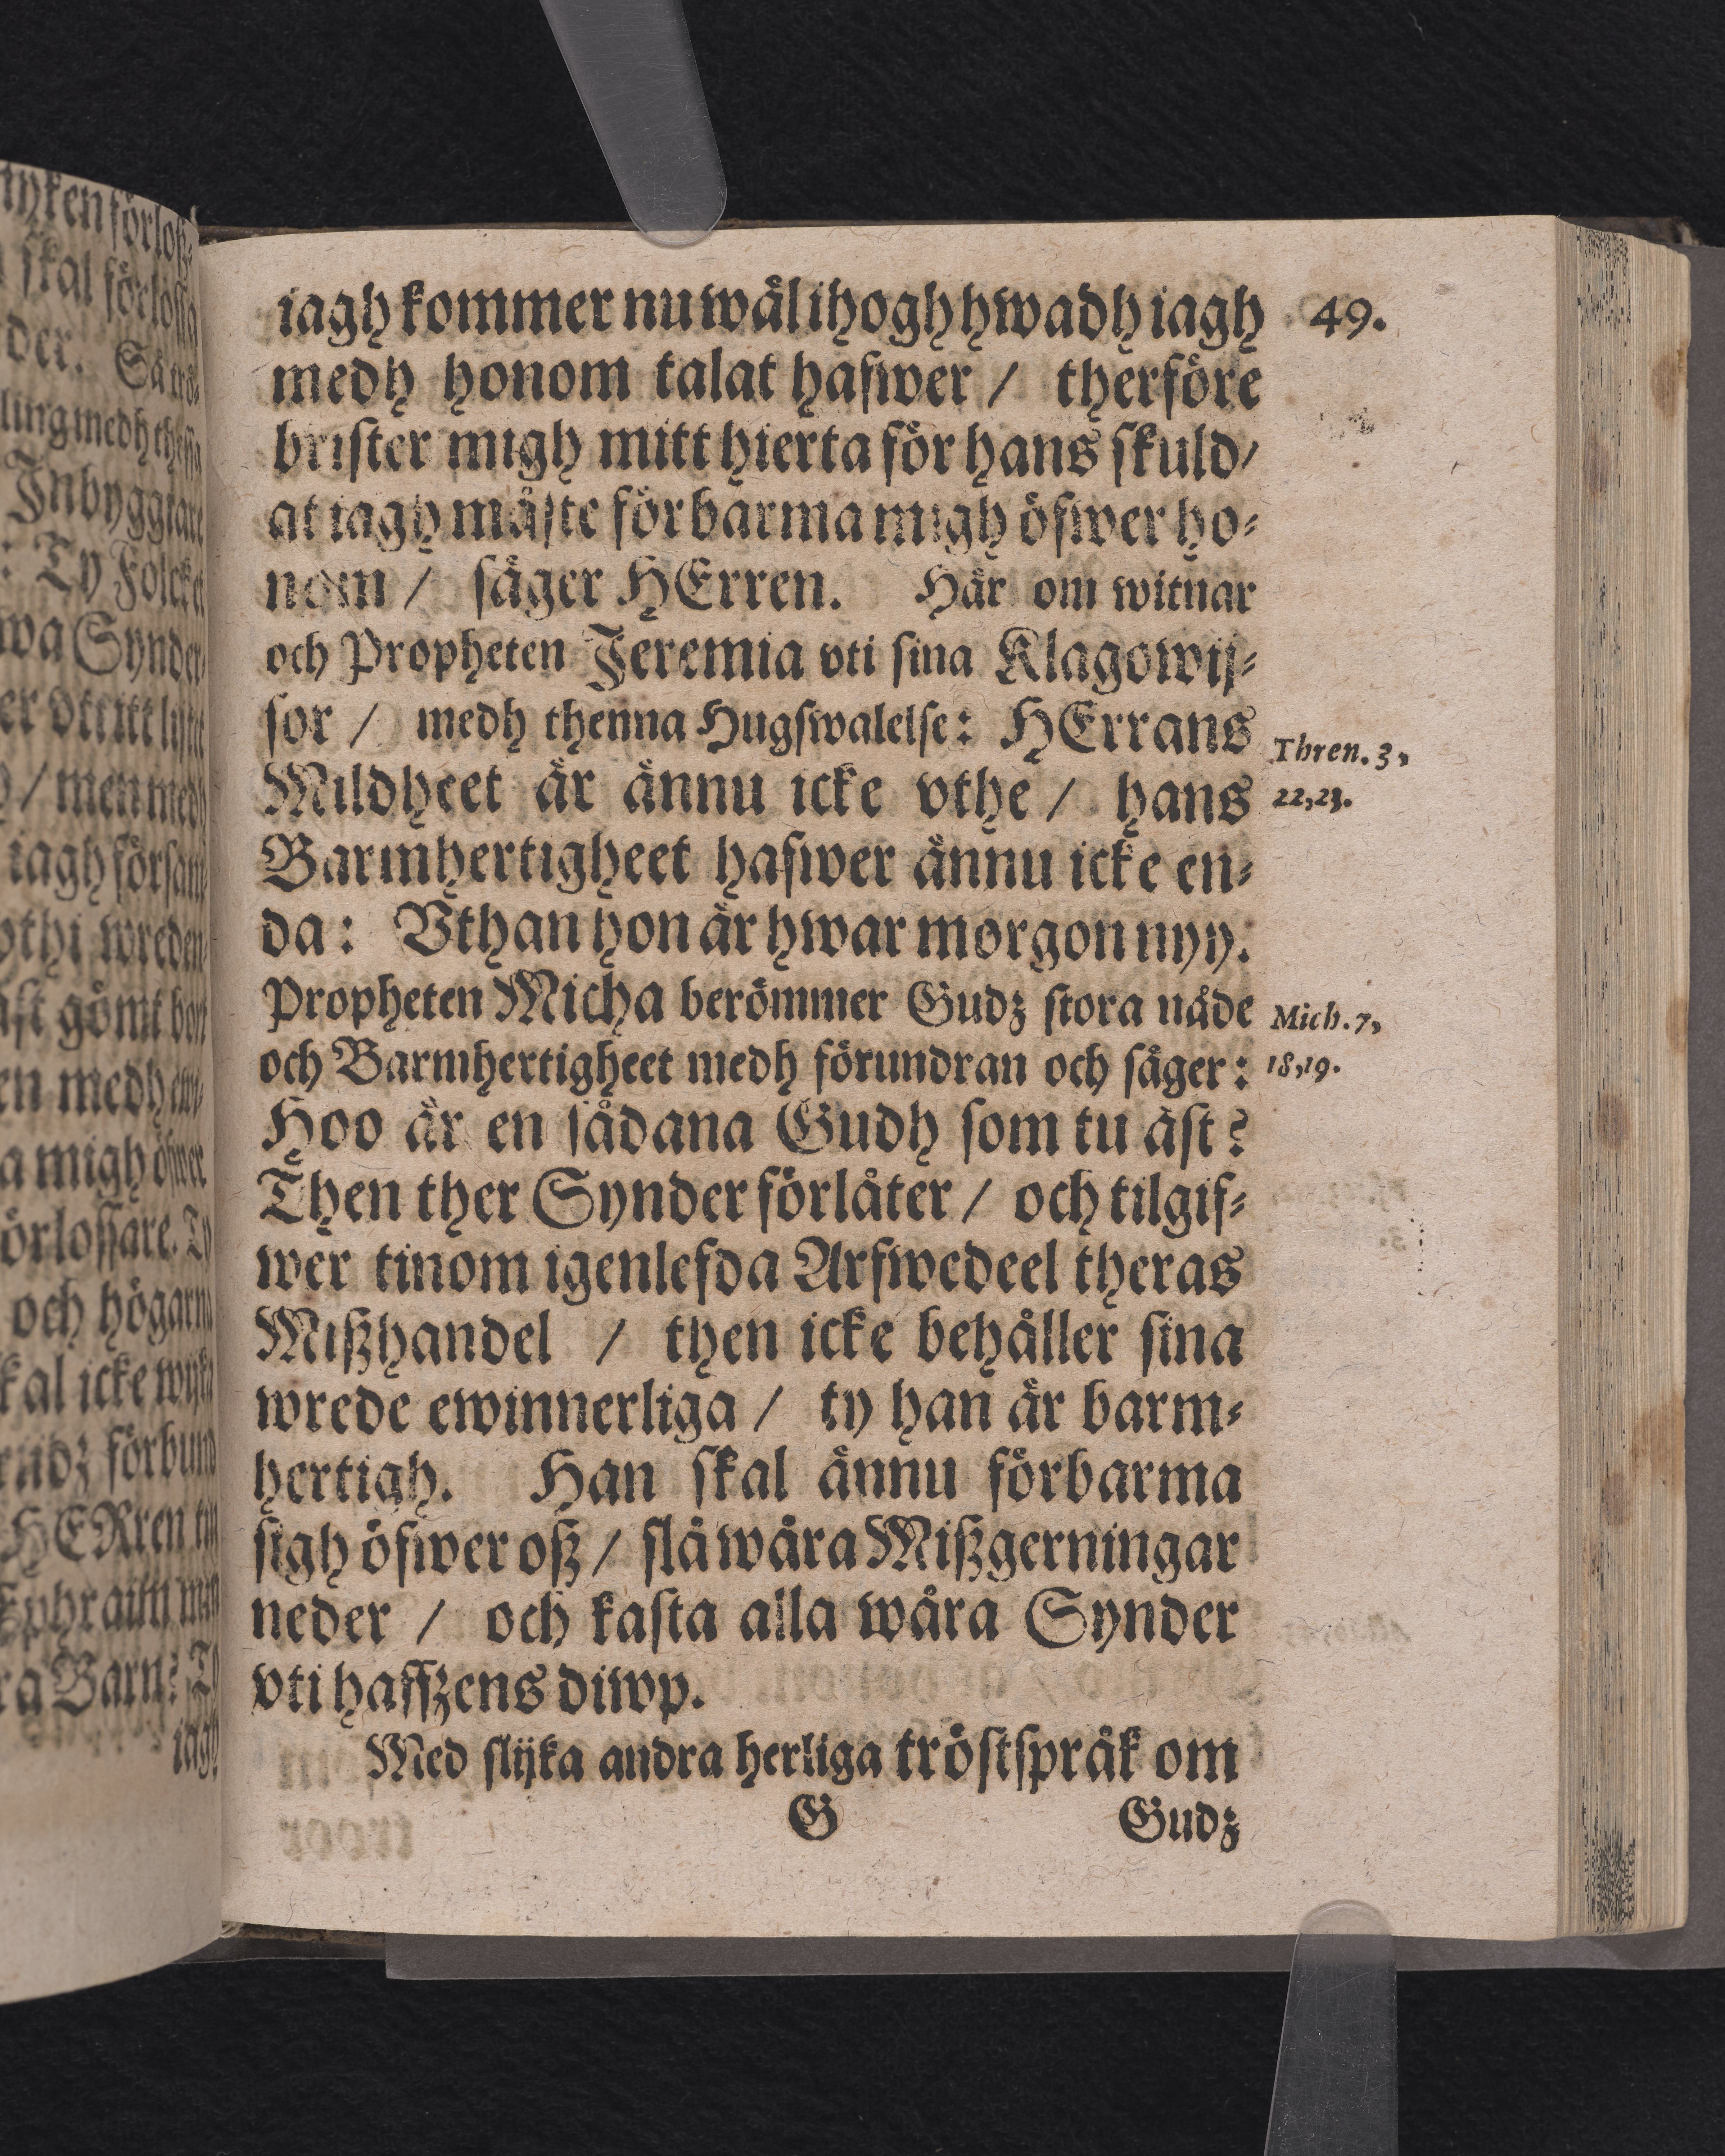 iagh kommer nu wäl ihogh hwadh iagh 49.
medh honom talat hafwer / therföre
brister migh mitt hierta för hans skuld/
at iagh måste förbarma migh öfwer ho-
nom / säger HErren. Här om witnar
och Propheten Jeremia vti sina Klagowij-
sor / medh thenna Hugswalelse: HErrans
Thren. 3,
Mildheet är ännu icke vthe / hans
22,23.
Barmhertigheet hafwer ännu icke en-
da: Vthan hon är hwar morgon nyy.
Propheten Micha berömmer Gudz stora nåde
Mich. 7,
och Barmhertigheet medh förundran och säger:
18,19.
Hoo är en sådana Gudh som tu äst?
Then ther Synder förlåter / och tilgif-
wer tinom igenlefda Arfwedeel theras
Mißhandel / then icke behåller sina
wrede ewinnerliga / ty han är barm-
hertigh. Han skal ännu förbarma
sigh öfwer oß / slå wåra Mißgerningar
neder / och kasta alla wåra Synder
vti haffzens diwp.
Med slijka andra herliga tröstspråk om
G Gudz